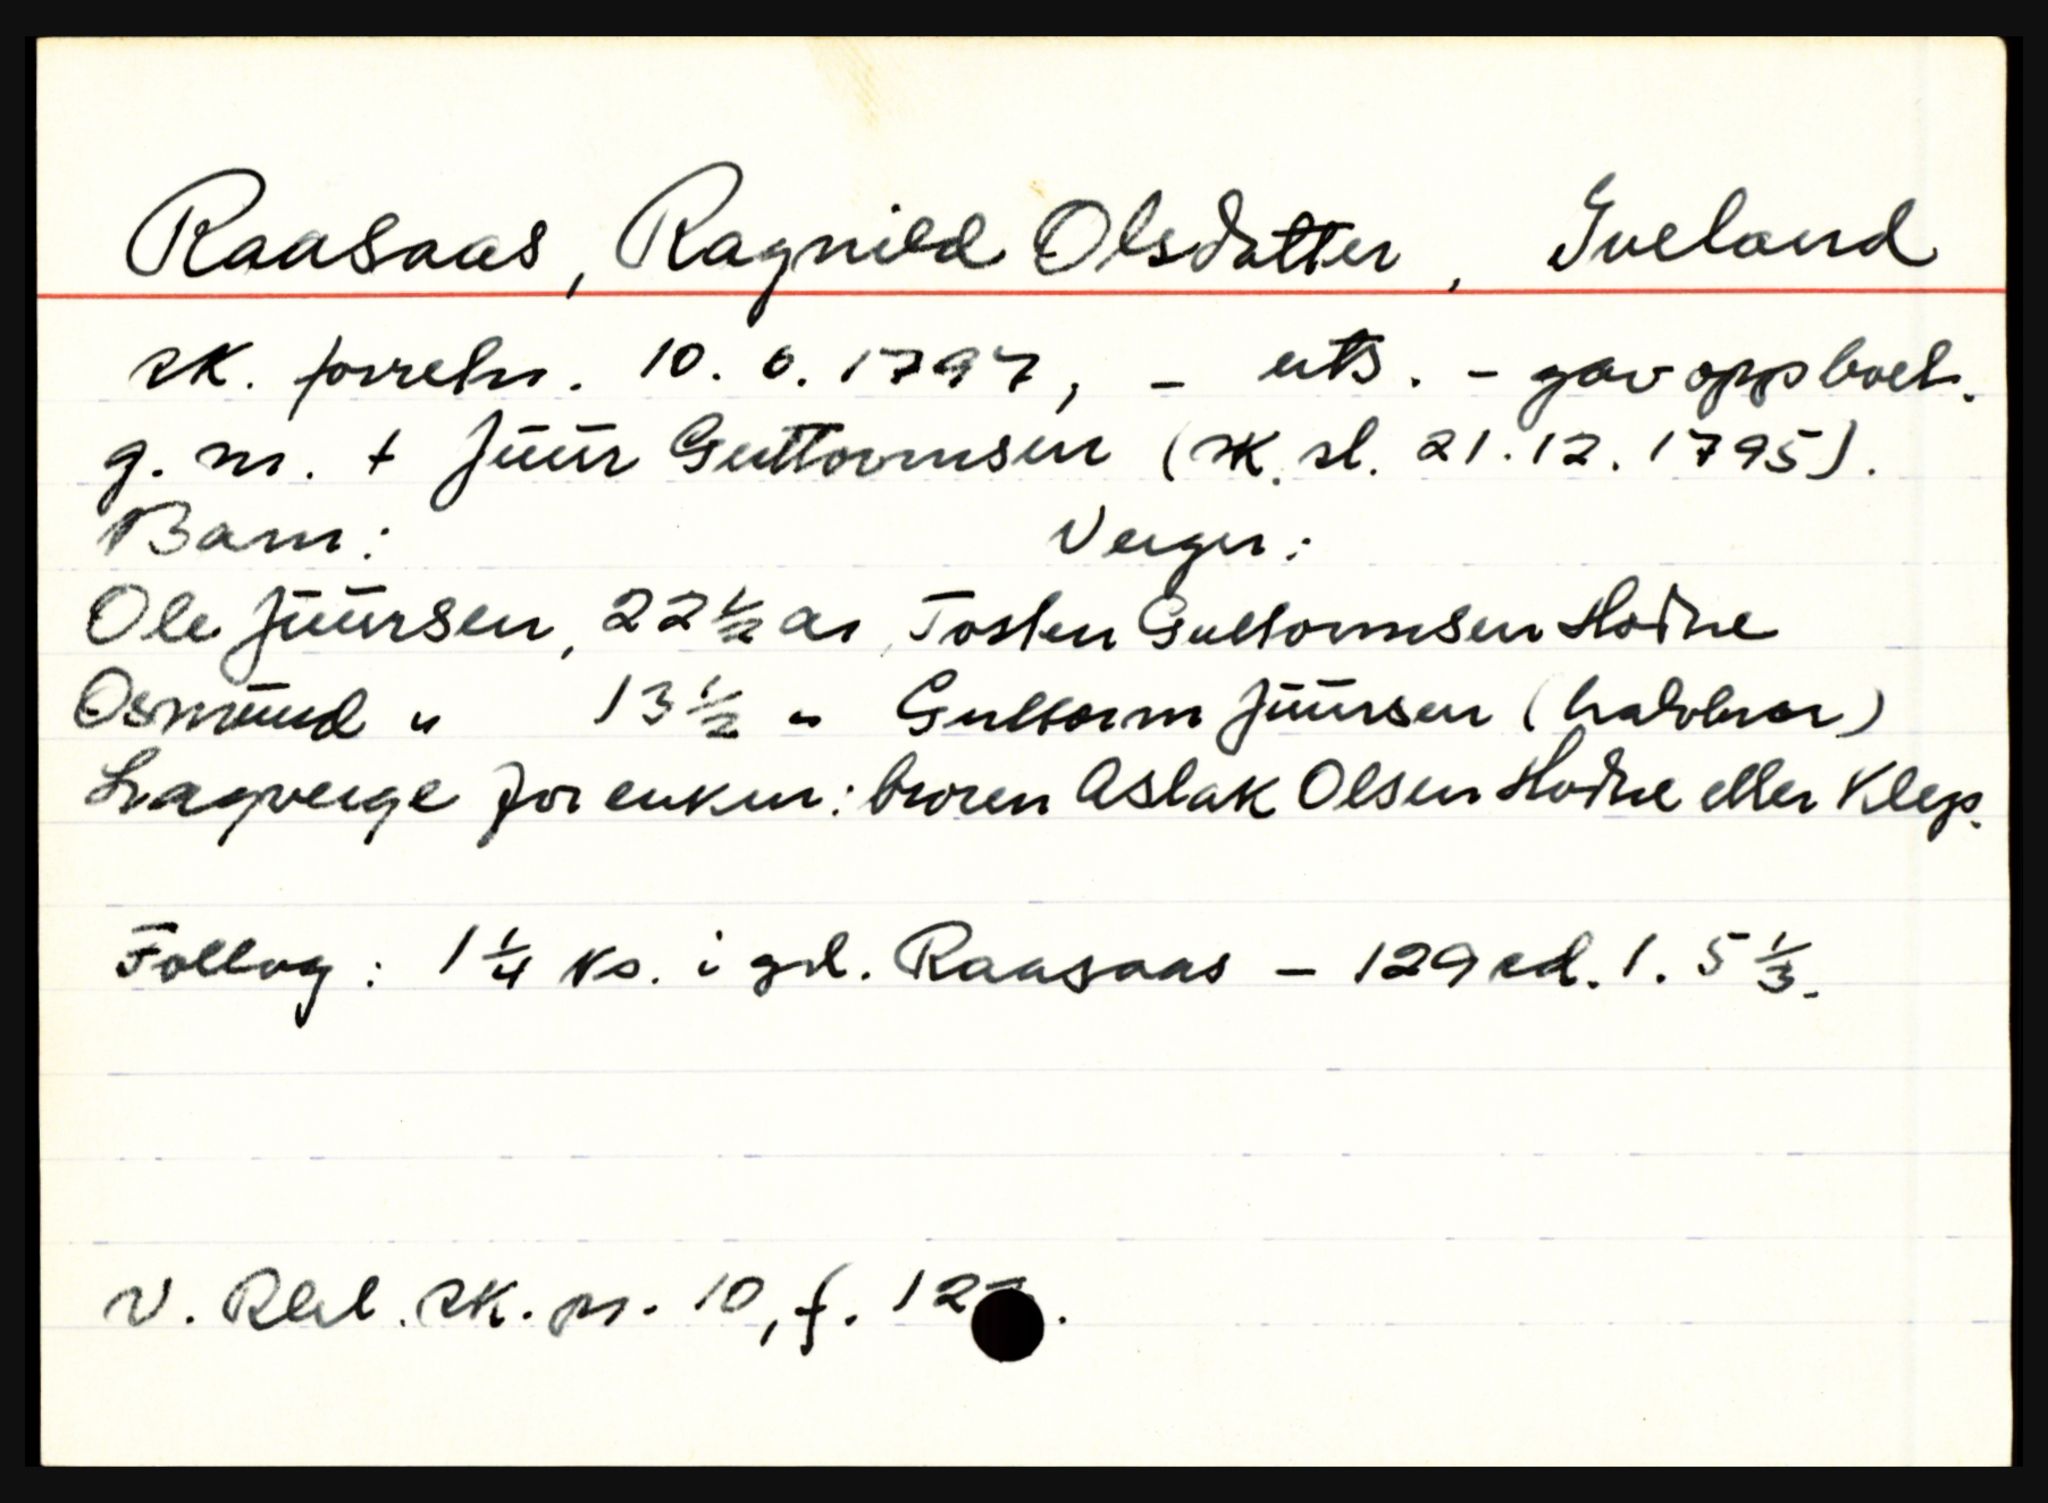 Raasaas, Ragnild Olsdatter, Iveland
sk. forretn. 10. 6. 1797, - uts. - gav opp boet.
g. m. + Juur Guttormsen (sk. sl. 21.12.1795).
Barn: Verger:
Ole Juursen, 22 1/2 år, Tosten Guttormsen Hodne
Osmund " 13 1/2 " Guttorm Juursen (halvbror)
Lagverge for enken: broren Aslak Olsen Hodne eller Klep.
Follug: 1 1/4 ks. i gd. Raasaas - 129 rd. 1. 5 1/3.
V. Rbd. sk. pr. 10, f. 12